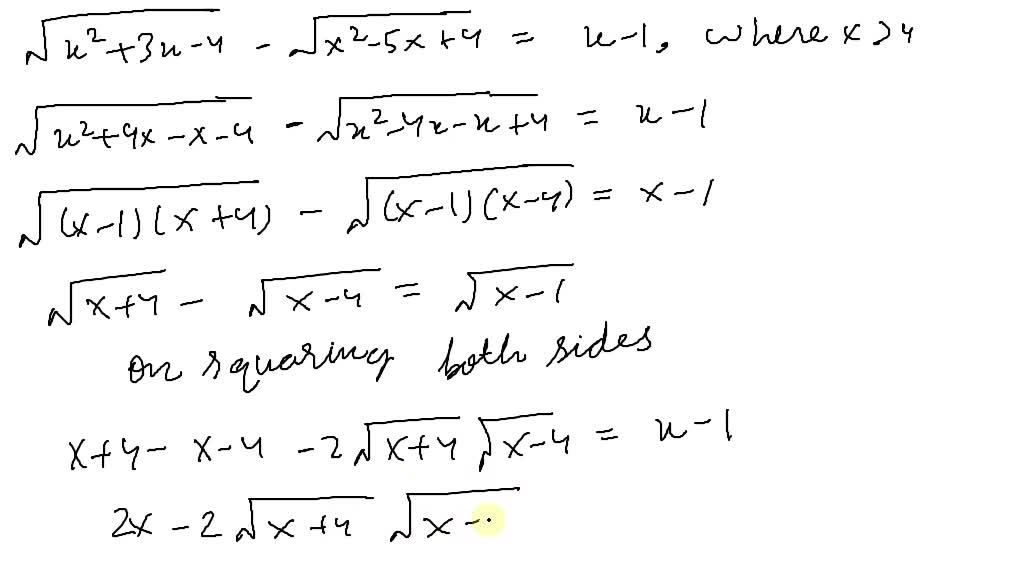 √(x²+3x-4) - √(x²-5x+4) = x-1, where x>4
√(x²+4x-x-4) - √(x²-4x-x+4) = x-1
√((x-1)(x+4)) - √((x-1)(x-4)) = x-1
√(x+4) - √(x-4) = √(x-1)
on squaring both sides
x+4- x-4 -2√(x+4) √(x-4) = x-1
2x-2√(x+4) √(x-